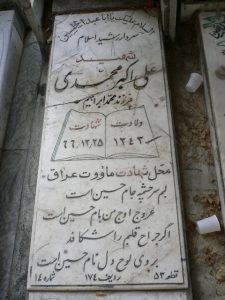 السلام علیک یا اباعبدالله الحسین
سردار رشید اسلام
شهید
علی اکبر محمدی
فرزند محمد ابراهیم
ولادت شهادت
۱۳۴۳ ۶۶،۱۲،۲۵
محل شهادت ماووت عراق
بر سرچشمه جام حسین است
عروج اوج من بام حسین است
اگر جراح قلبم را شکافد
بروی لوح دل نام حسین است
قطعه ۵۳ ردیف ۱۷۴ شماره ۱۴